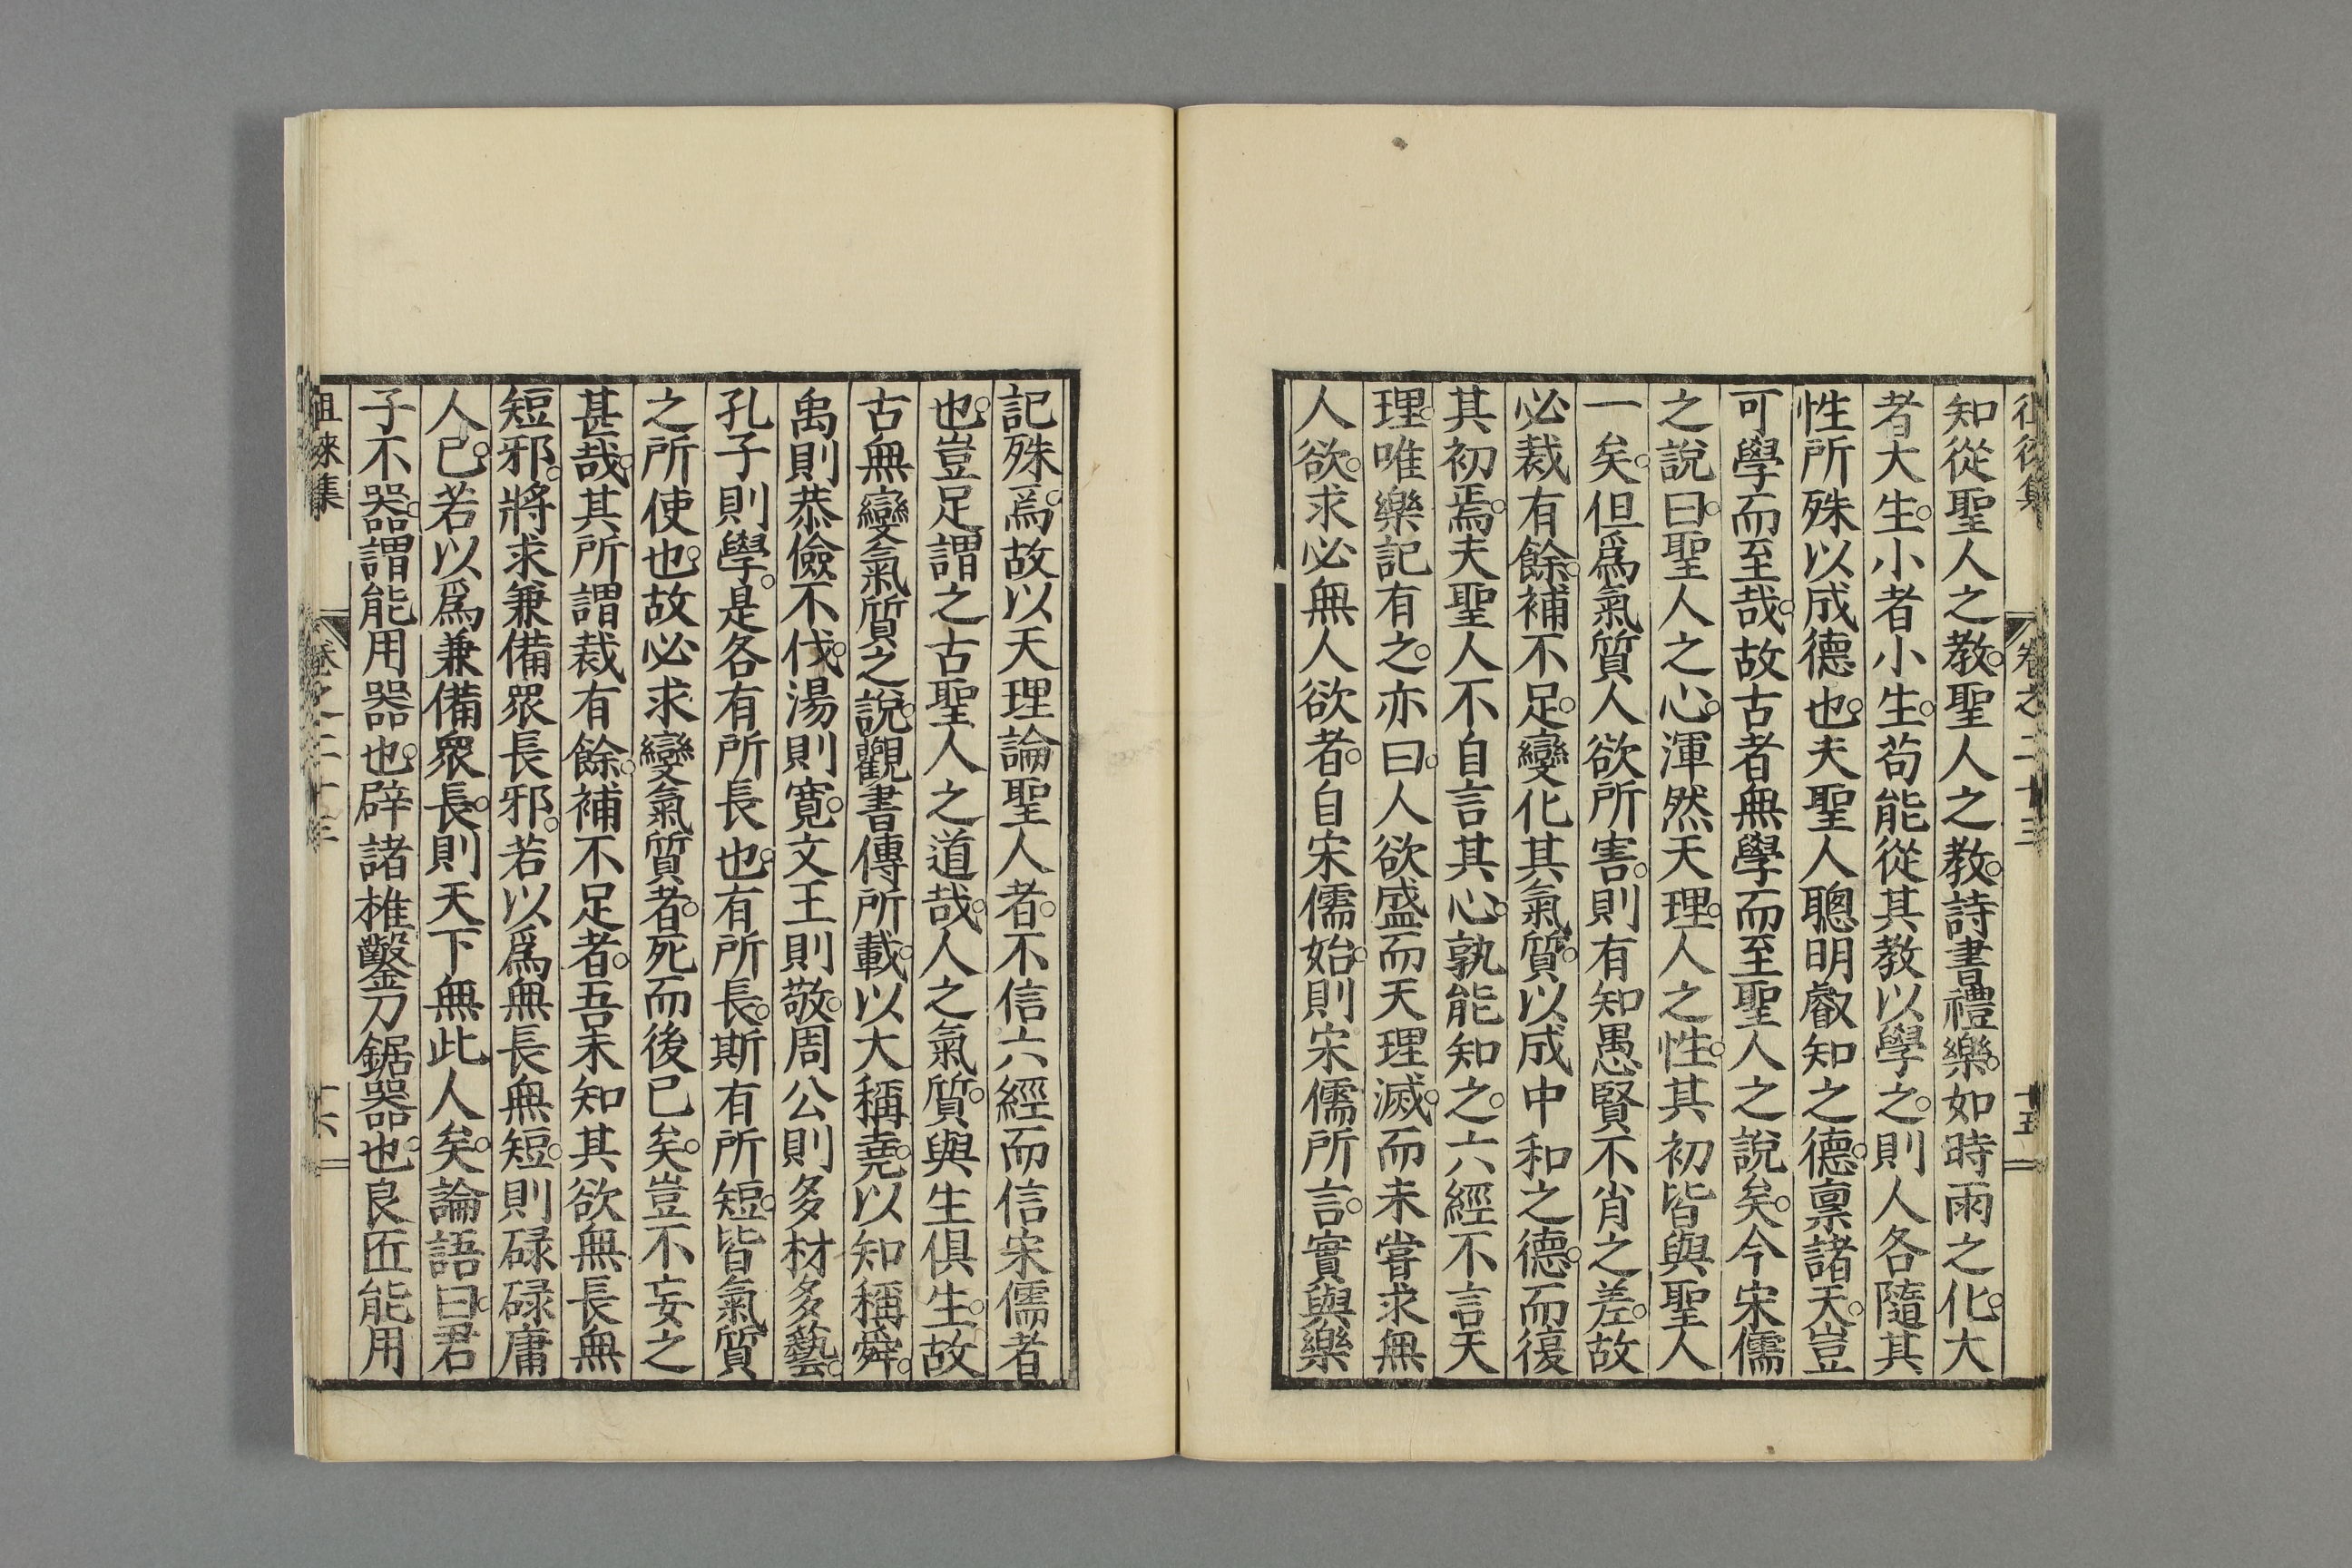 知從聖人之教。聖人之教。詩書禮樂。如時雨之化。大
者大生。小者小生。苟能從其教以學之。則人各隨其
性所殊以成德也。夫聖人聰明叡知之德。禀諸天。豈
可學而至哉。故古者無學而至聖人之說矣。今宋儒
之說曰。聖人之心。渾然天理。人之性。其初皆與聖人
一矣。但爲氣質人欲所害。則有知愚賢不肖之差。故
必裁有餘。補不足。變化其氣質。以成中和之德。而復
其初焉。夫聖人不自言其心。孰能知之。六經不言天
理。唯樂記有之。亦曰。人欲盛而天理滅。而未嘗求無
人欲。求必無人欲者。自宋儒始。則宋儒所言。實與樂
記殊焉。故以天理論聖人者。不信六經而信宋儒者
也。豈足謂之古聖人之道哉。人之氣質。與生俱生。故
古無變氣質之說。觀書傳所載。以大稱堯。以知稱舜。
禹則恭儉不伐。湯則寬。文王則敬。周公則多材多藝。
孔子則學。是各有所長也。有所長。斯有所短。皆氣質
之所使也。故必求變氣質者。死而後已矣。豈不妄之
甚哉。其所謂裁有餘。補不足者。吾未知其欲無長無
短邪。將求兼備眾長邪。若以爲無長無短。則碌碌庸
人已。若以爲兼備眾長。則天下無此人矣。論語曰。君
子不器。謂能用器也。辟諸椎鑿刀鋸器也。良匠能用
徂徠集 卷之二十三 十六